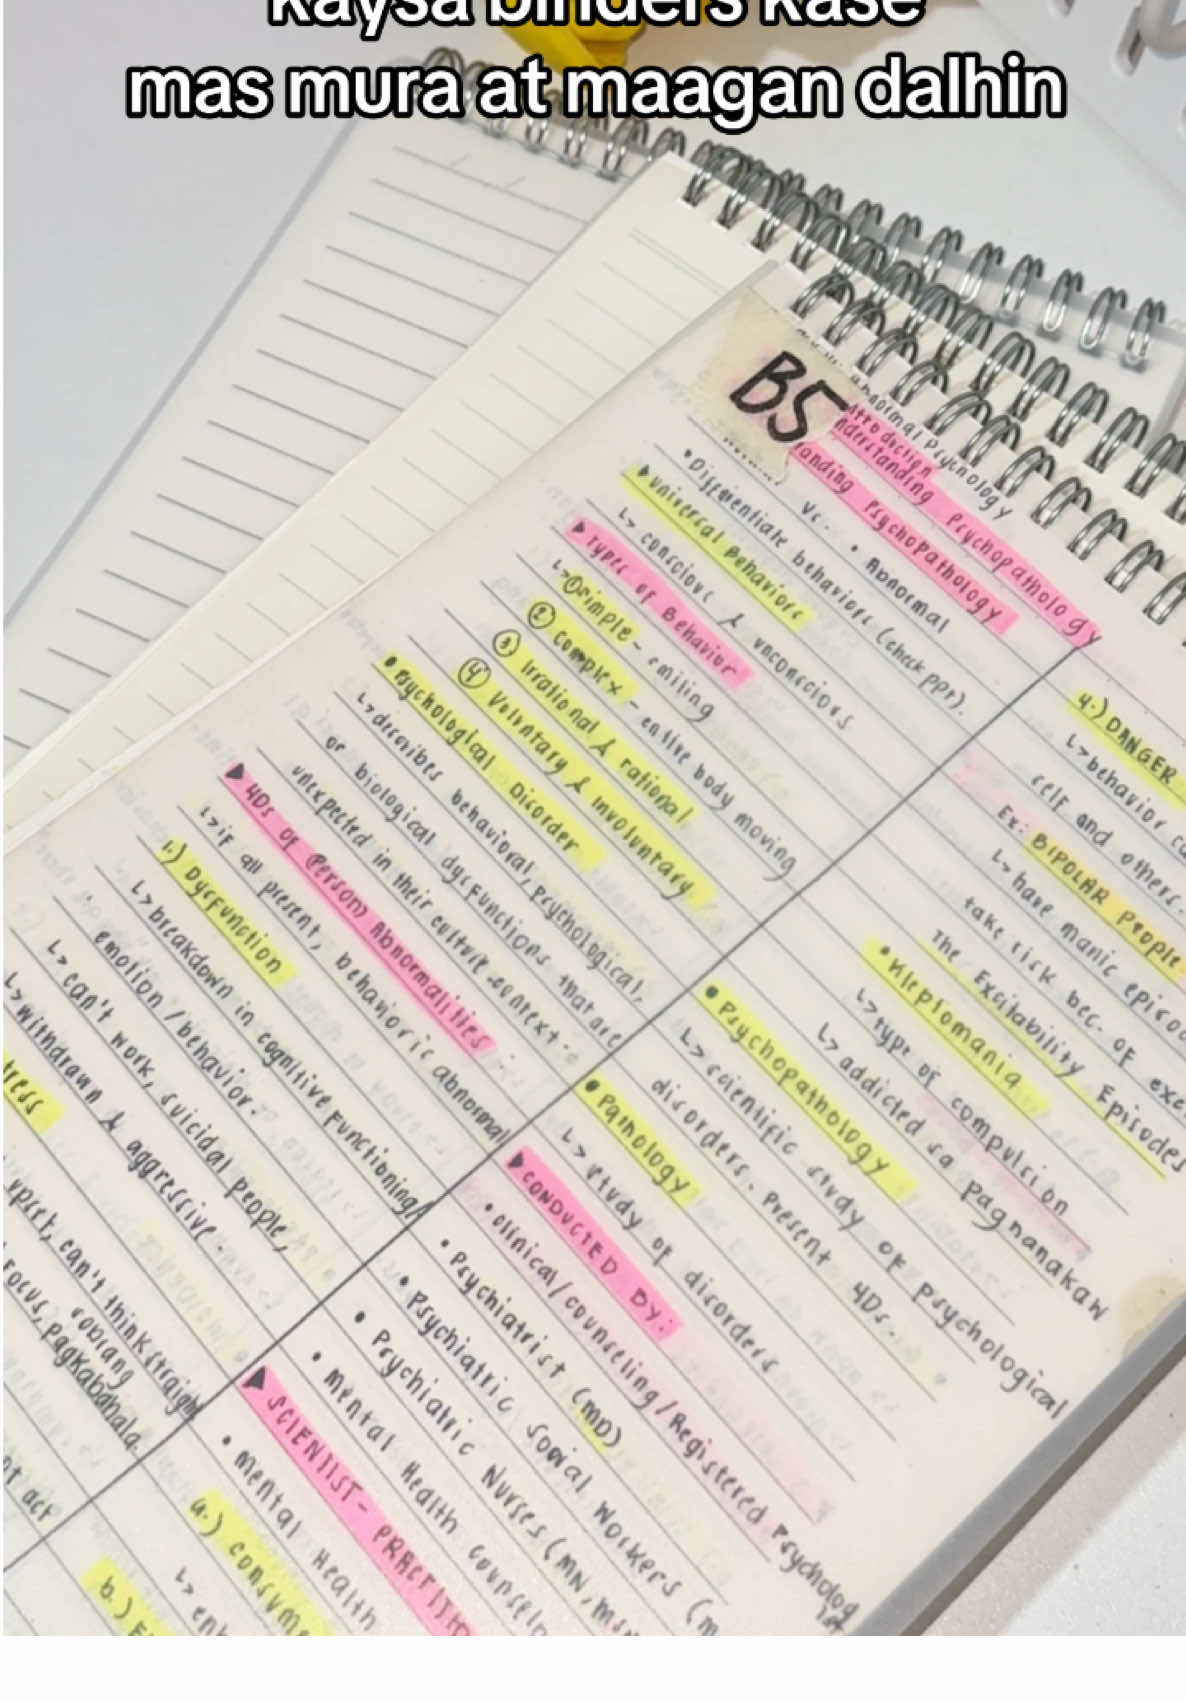 kaysa binders kase
mas mura at maagan dalhin
B5
Abnormal Psychology
Introduction
Understanding Psychopathology
Psychopathology
vs. • Abnormal
• Differentiate behaviors (check ppt).
▶ Universal Behaviors
↳ conscious & unconscious
▶ Types of Behavior
↳ ① Simple - smiling
② Complex - entire body moving
③ Irrational & rational
④ Voluntary & Involuntary
• Psychological Disorder
↳ describes behavioral, psychological,
or biological dysfunctions that are
unexpected in their culture context.
▶ 4Ds of (Person) Abnormalities:
↳ if all present, behavior is abnormal
1.) Dysfunction
↳ breakdown in cognitive functioning/
emotion/behavior.
↳ can't work, suicidal people,
↳ withdrawn & aggressive.
can't think straight
sobrang
focus, pagkabahala.
act
4.) DANGER
↳ behavior
self and others.
Ex: BIPOLAR People
↳ have manic
take risk bec. of
The Excitability Episodes
• Kleptomania
↳ type of compulsion
↳ addicted sa pagnanakaw
• Psychopathology
↳ scientific study of psychological
disorders. Present 4Ds.
• Pathology
↳ study of disorders
▶ CONDUCTED BY:
• Clinical/counseling/Registered
• Psychiatrist (MD)
• Psychiatric Social Workers
• Psychiatric Nurses (MN,
• Mental Health
▶ SCIENTIST-
• Mental Health
a.)
b.)